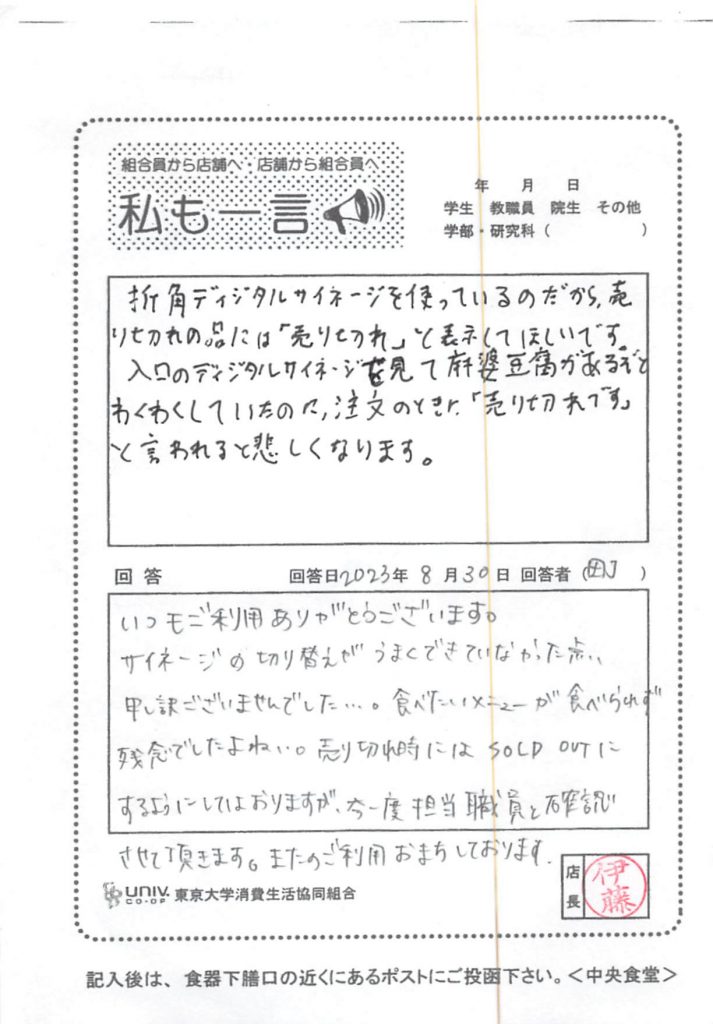 組合員から店舗へ・店舗から組合員へ
私も一言
年 月 日
学生 教職員 院生 その他
学部・研究科( )
折角ディジタルサイネージを使っているのだから、売
り切れの品には「売り切れ」と表示してほしいです。
入口のディジタルサイネージを見て麻婆豆腐があるぞと
わくわくしていたのに、注文のときに「売り切れです」
と言われると悲しくなります。
回答 回答日2023年 8月30日 回答者( )
いつもご利用ありがとうございます。
サイネージの切り替えがうまくできていなかった点、
申し訳ございませんでした…。食べたいメニューが食べられず
残念でしたよね…。売り切れ時には SOLD OUTに
するようにしてはおりますが、今一度担当職員と確認
させて頂きます。またのご利用おまちしております。
UNIV.
CO-OP
東京大学消費生活協同組合
店長
伊藤
記入後は、食器下膳口の近くにあるポストにご投函下さい。<中央食堂>